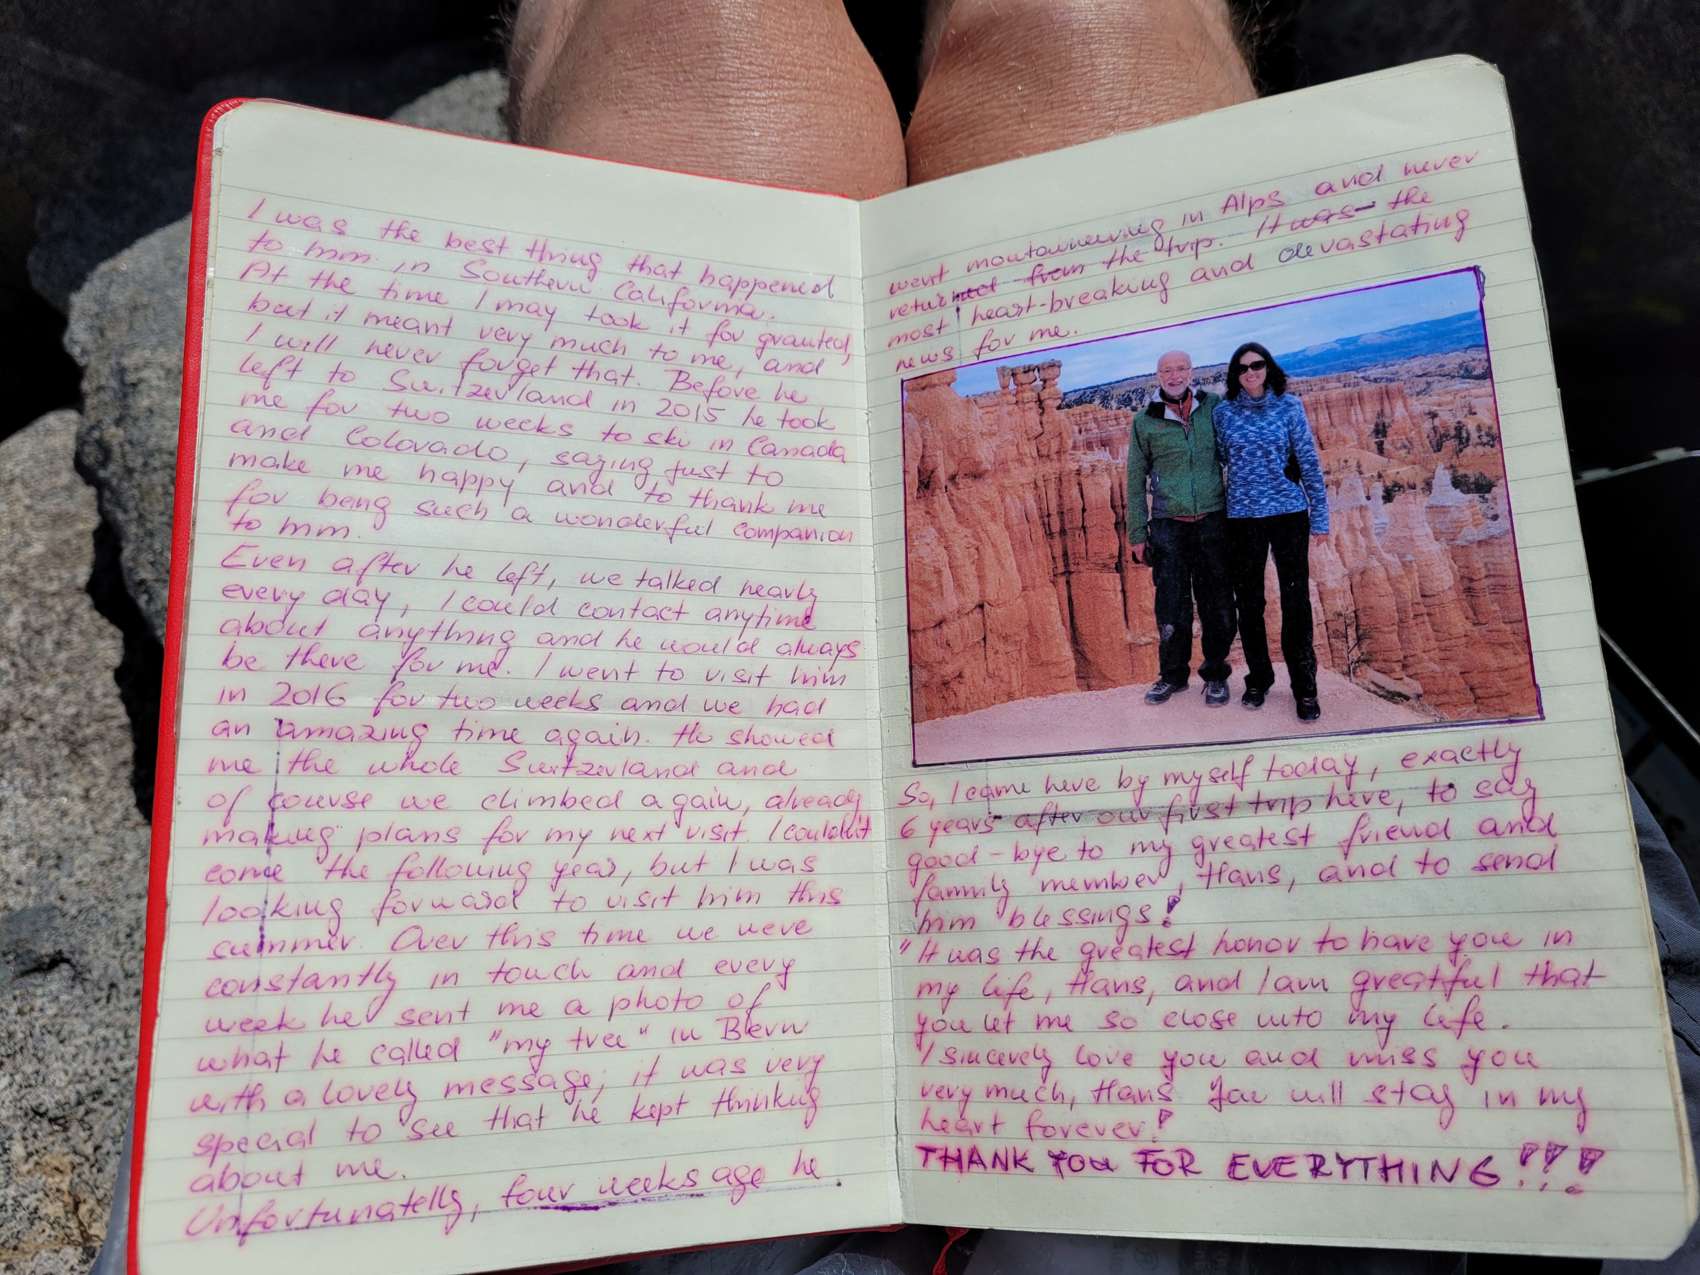 I was the best thing that happened
to him in Southern California.
At the time I may took it for granted,
but it meant very much to me, and
I will never forget that. Before he
left to Switzerland in 2015 he took
me for two weeks to ski in Canada
and Colorado, saying just to
make me happy and to thank me
for being such a wonderful companion
to him.
Even after he left, we talked nearly
every day, I could contact anytime
about anything and he would always
be there for me. I went to visit him
in 2016 for two weeks and we had
an amazing time again. He showed
me the whole Switzerland and
of course we climbed again, already
making plans for my next visit. I couldn't
come the following year, but I was
looking forward to visit him this
summer. Over this time we were
constantly in touch and every
week he sent me a photo of
what he called "my tree" in Bern
with a lovely message; it was very
special to see that he kept thinking
about me.
Unfortunatelly, four weeks ago he
went mountaineering in Alps and never
returned from the trip. It was the
most heart-breaking and devastating
news for me.
So, I came here by myself today, exactly
6 years after our first trip here, to say
good-bye to my greatest friend and
family member, Hans, and to send
him blessings!
"It was the greatest honor to have you in
my life, Hans, and I am greatful that
you let me so close into my life.
I sincerely love you and miss you
very much, Hans. You will stay in my
heart forever!
THANK YOU FOR EVERYTHING!!!